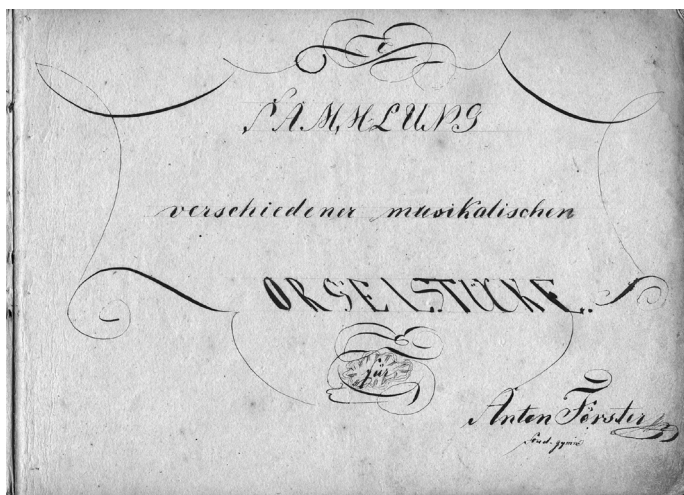 SAMMLUNG
verschiedener musikalischen
ORGELSTÜCKE.
für
Anton Förster
stud. gymn.